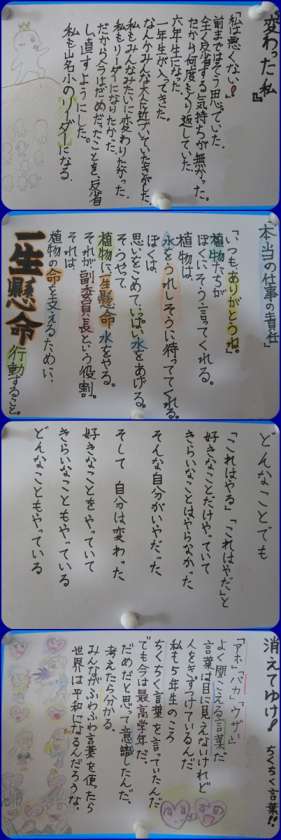 『変わった私』
「私は悪くない！」
前まではそう思っていた。
全く反省する気持ちが無かった。
だから何度もくり返していた。
六年生になった。
一年生が入ってきた。
なんかみんな大人に近づいていたきがした。
私もみんなみたいに変わりたかった。
私もリーダーになりたかった。
だから今まだめだったことを、反省
し直すようにした。
私も山名小のリーダーになる。
「本当の仕事の責任」
「いつもありがとうね。」
植物たちが
ぼくにそう言ってくれる。
植物は、
水をうれしそうに待ってくれる。
ぼくは、
思いをこめていっぱい水をあげる。
そうやって
植物に一生懸命水をやる。
それが副委員長という役割。
それは、
植物の命を支えるために、
一生懸命行動すること。
どんなことでも
「これはやる」「これはやだ」と
好きなことだけやっていて
きらいなことはやらなかった
そんな自分がいやだった
そして 自分は変わった
好きなことをやっていて
きらいなこともやっている
どんなこともやっている
消えてゆけ！ ちくちく言葉!!
「アホ」「バカ」「ウザ」
よく聞こえる言葉だ
言葉は目に見えないけれど
人をきずつけているんだ
私も5年生のころ
ちくちく言葉を言っていたんだ
でも今は最高学年だ。
だめだと思って意識したんだ。
考えたら分かる。
みんながふわふわ言葉を使ったら
世界は平和になるんだろうな。